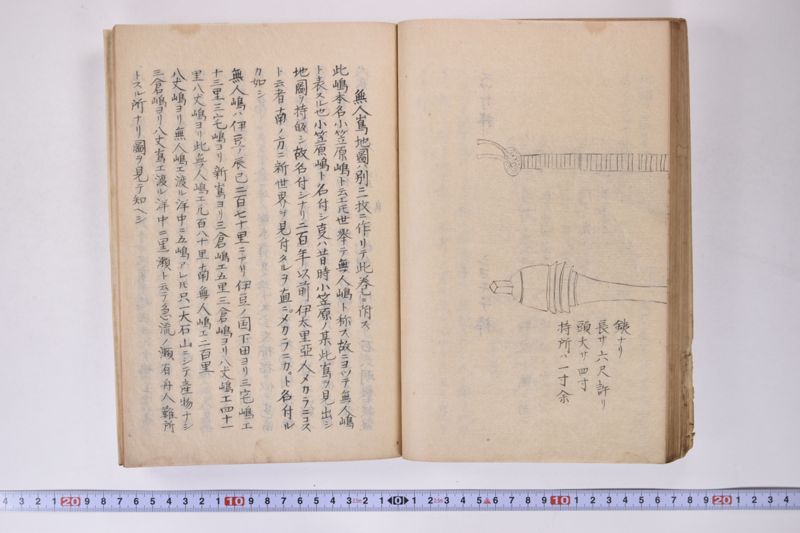 銕ナリ
長サ六尺許リ
頭大サ四寸
持所ハ一寸余
無人嶌地圖ハ別ニ一枚ニ作リテ此巻ニ附ス
此嶋本名小笠原嶋ト云エ𪜈世挙テ無人嶋ト称ス故ニヨツテ無人嶋
ト表スル也小笠原嶋ト名付シ㕝ハ昔時小笠原ノ某此嶌ヲ見出シ
地圖ヲ持皈シ故名付シナリ二百年以前伊太里亞人メカラニコス
ト云者南ノ方ニ新世界ヲ見付タルヲ直ニメカラニカト名付ル
カ如シ
無人嶋ハ伊豆ノ辰巳二百七十里ニアリ伊豆ノ国下田ヨリ三宅嶋エ
十三里三宅嶋ヨリ新嶌ヨリ三倉嶋エ五里三倉嶋ヨリ八丈嶋エ四十一
里八丈嶋ヨリ此無人嶋エ凡百八十里南無人嶋エ二百里
八丈嶋ヨリ無人嶋エ渡ル洋中ニ五嶋アレ𪜈只一大石山ニシテ産物ナシ
三倉嶋ヨリ八丈嶌エ渡ル洋中ニ黒瀬ト云テ急流ノ瀬有舟人難所
トスル所ナリ圖ヲ見テ知ヘシ
4 3 2 1 20 9 8 7 6 5 4 3 2 1 10 9 8 7 6 5 4 3 2 1 0 1 2 3 4 5 6 7 8 9 10 1 2 3 4 5 6 7 8 9 20 1 2 3 4